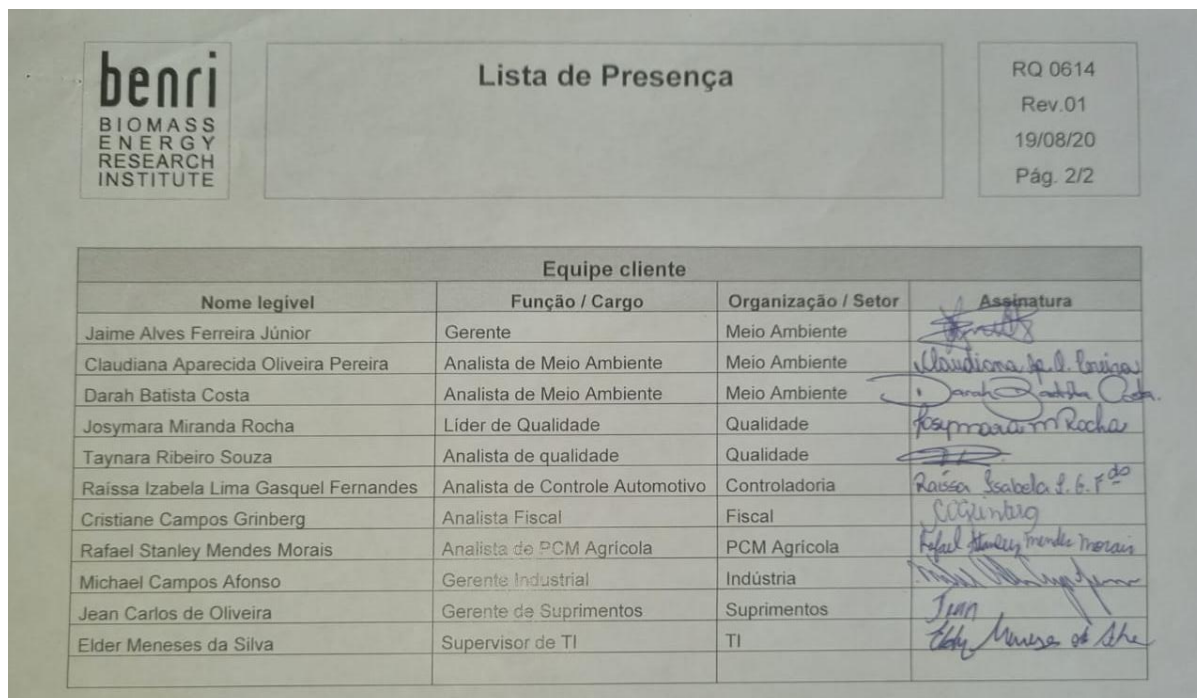 benri
BIOMASS
ENERGY
RESEARCH
INSTITUTE
Lista de Presença
RQ 0614
Rev.01
19/08/20
Pág. 2/2
Equipe cliente
Nome legível Função / Cargo Organização / Setor Assinatura
Jaime Alves Ferreira Júnior Gerente Meio Ambiente
Claudiana Aparecida Oliveira Pereira Analista de Meio Ambiente Meio Ambiente Claudiana Ap. O. Pereira
Darah Batista Costa Analista de Meio Ambiente Meio Ambiente Darah Batista Costa
Josymara Miranda Rocha Líder de Qualidade Qualidade Josymara M Rocha
Taynara Ribeiro Souza Analista de qualidade Qualidade
Raissa Izabela Lima Gasquel Fernandes Analista de Controle Automotivo Controladoria Raissa Isabela L. G. Fdo
Cristiane Campos Grinberg Analista Fiscal Fiscal CCGrinberg
Rafael Stanley Mendes Morais Analista de PCM Agrícola PCM Agrícola Rafael Stanley Mendes Morais
Michael Campos Afonso Gerente Industrial Indústria
Jean Carlos de Oliveira Gerente de Suprimentos Suprimentos Jean
Elder Meneses da Silva Supervisor de TI TI Elder Meneses da Silva